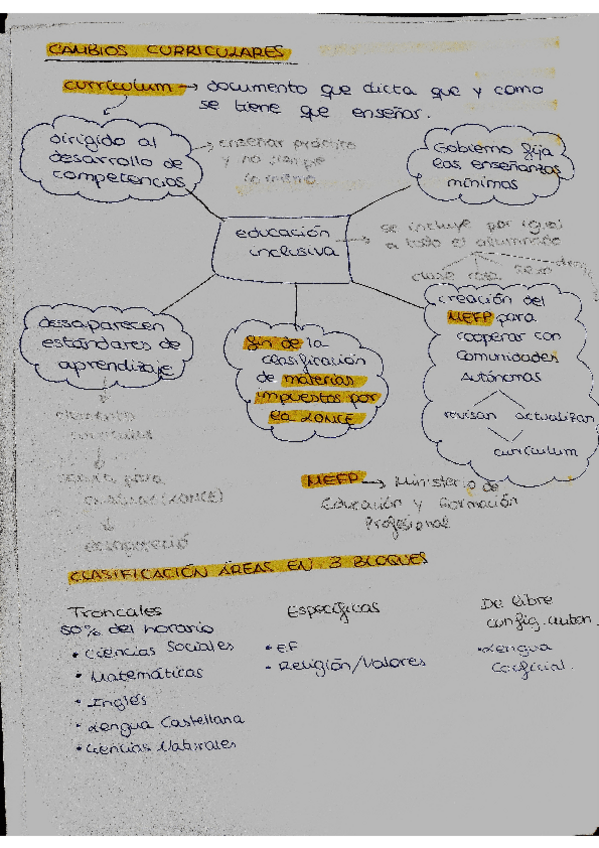 CAMBIOS CURRICULARES
curriculum → documento que dicta que y como
se tiene que enseñar.
dirigido al
desarrollo de
competencias
→ enseñar práctico
y no siempre
lo mismo
Gobierno fija
las enseñanzas
mínimas
educación
inclusiva
→ se incluye por igual
a todo el alumnado
clase raza sexo
desaparecen
estándares de
aprendizaje
elemento
curricular
para
evaluar (LOMCE)
desapareció
fin de la
clasificación
de materias
impuestas por
la LOMCE
creación del
MEFP para
cooperar con
Comunidades
Autónomas
revisan actualizan
curriculum
MEFP → Ministerio de
Educación y Formación
Profesional
CLASIFICACIÓN ÁREAS EN 3 BLOQUES
Troncales
50% del horario
• Ciencias Sociales
• Matemáticas
• Inglés
• Lengua Castellana
• Ciencias Naturales
Específicas
• EF
• Religión/Valores
De libre
config. auton.
• Lengua
Cooficial.